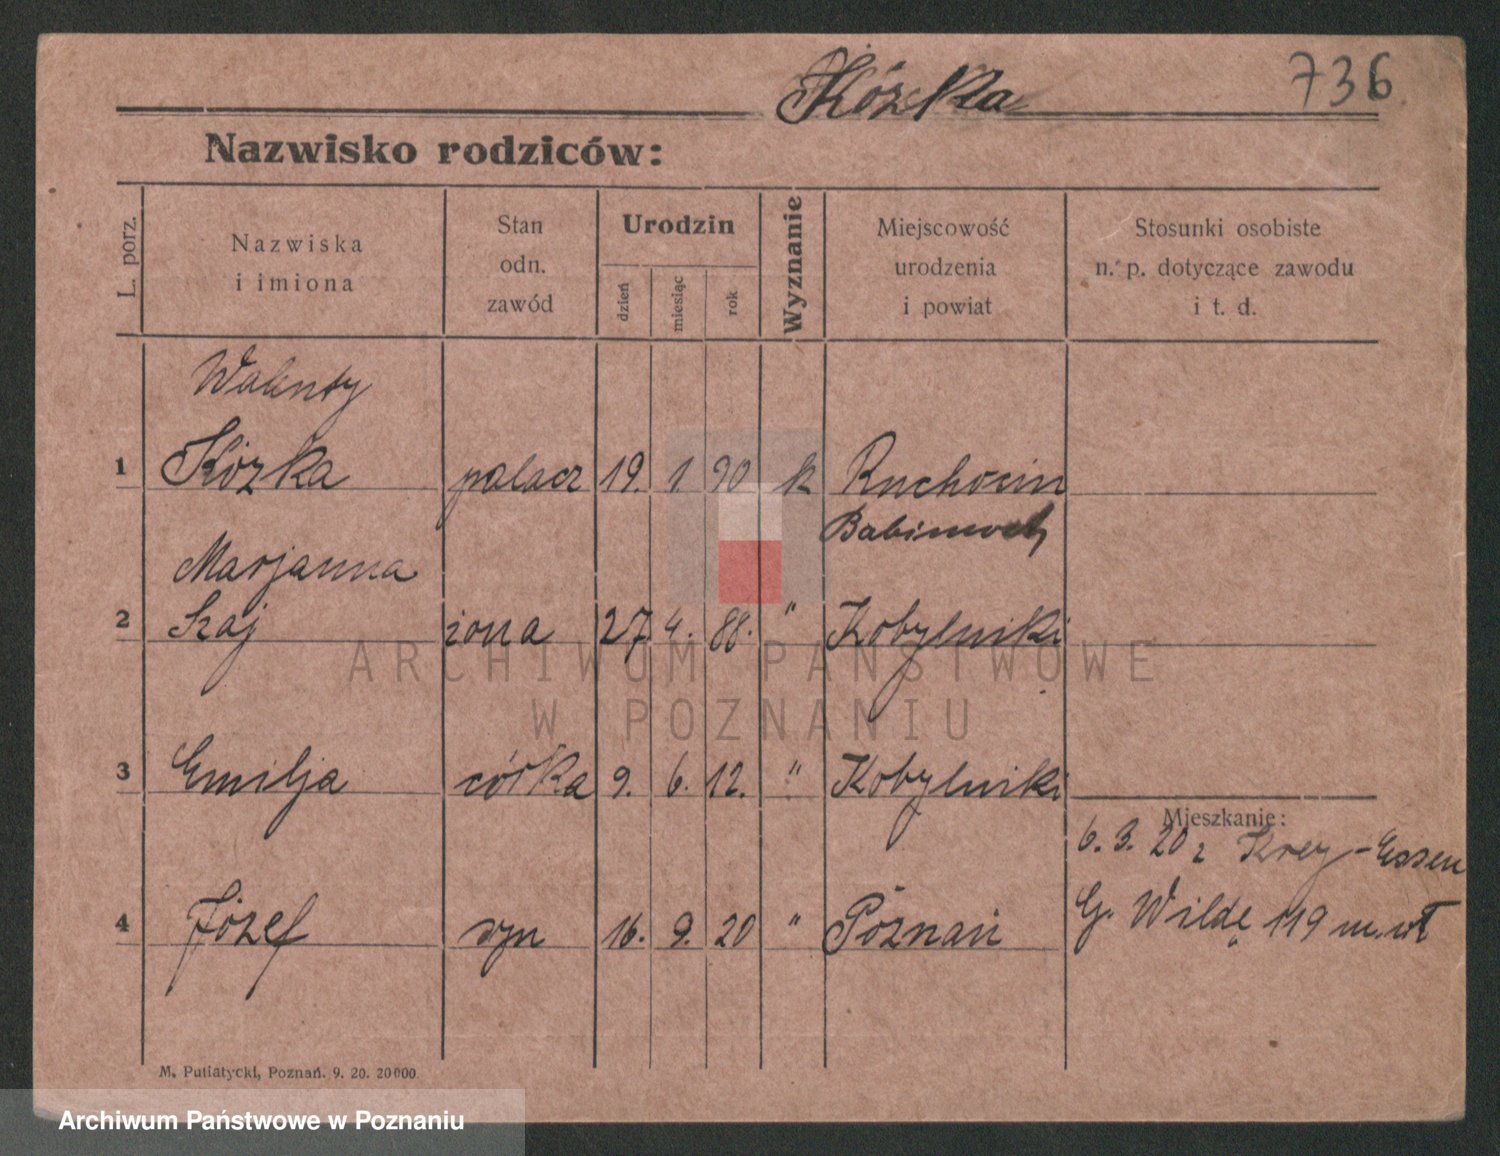 Kózka 736
Nazwisko rodziców:
L. porz.
Nazwiska
i imiona
Stan
odn.
zawód
Urodzin
dzień
miesiąc
rok
Wyznanie
Miejscowość
urodzenia
i powiat
Stosunki osobiste
n. p. dotyczące zawodu
i t. d.
Walenty
1 Kózka palacz 19. 1. 90 k Ruchocin
Babimost
Marjanna
2 Szaj żona 27 4. 88. " Kobylniki
3 Emilja córka 9. 6. 12. " Kobylniki
Mieszkanie:
6. 3. 20 z Krey-Essen
4 Józef syn 16. 9. 20 " Poznań G. Wilda 119 m.
M. Putiatycki, Poznań. 9. 20. 20000.
ARCHIWUM PAŃSTWOWE
W POZNANIU
Archiwum Państwowe w Poznaniu